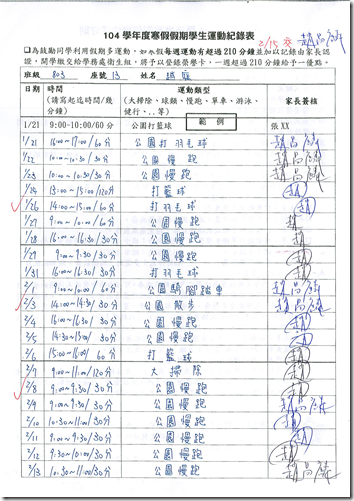 104 學年度寒假假期學生運動紀錄表
2/15 交
為鼓勵同學利用假期多運動,如寒假每週運動有超過 210 分鐘並加以記錄由家長認
證,開學繳交給學務處衛生組,將予以登錄榮譽卡,一週超過 210 分鐘給予一優點。
班級 803 座號 13 姓名
日期 時間(請寫起迄時間/幾分鐘) 運動類型(大掃除、球類、慢跑、單車、游泳、健行、..等) 家長簽核
範例
1/21 9:00-10:00/60分 公園打籃球 張XX
1/21 16:00~17:00/60分 公園打羽毛球
1/22 10:00~10:30/30分 公園慢跑
1/23 10:00~10:30/30分 公園慢跑
1/24 13:00~15:00/120分 打籃球
1/26 14:00~15:00/60分 打羽毛球
1/27 9:00~10:00/60分 公園慢跑
1/28 16:00~16:30/30分 公園慢跑
1/29 9:00~9:30/30分 公園慢跑
1/31 16:00~16:30/30分 打羽毛球
2/1 9:00~10:00/60分 公園騎腳踏車
2/3 14:00~14:30/30分 公園散步
2/4 16:00~16:30/30分 公園慢跑
2/5 14:30~15:00/30分 公園慢跑
2/6 15:00~16:00/60分 打籃球
2/7 9:00~11:00/120分 大掃除
2/8 9:00~9:30/30分 公園慢跑
2/9 9:00~9:30/30分 公園慢跑
2/10 10:30~11:00/30分 公園慢跑
2/11 9:00~9:30/30分 公園慢跑
2/12 9:30~10:00/30分 公園慢跑
2/13 10:30~11:00/30分 公園慢跑